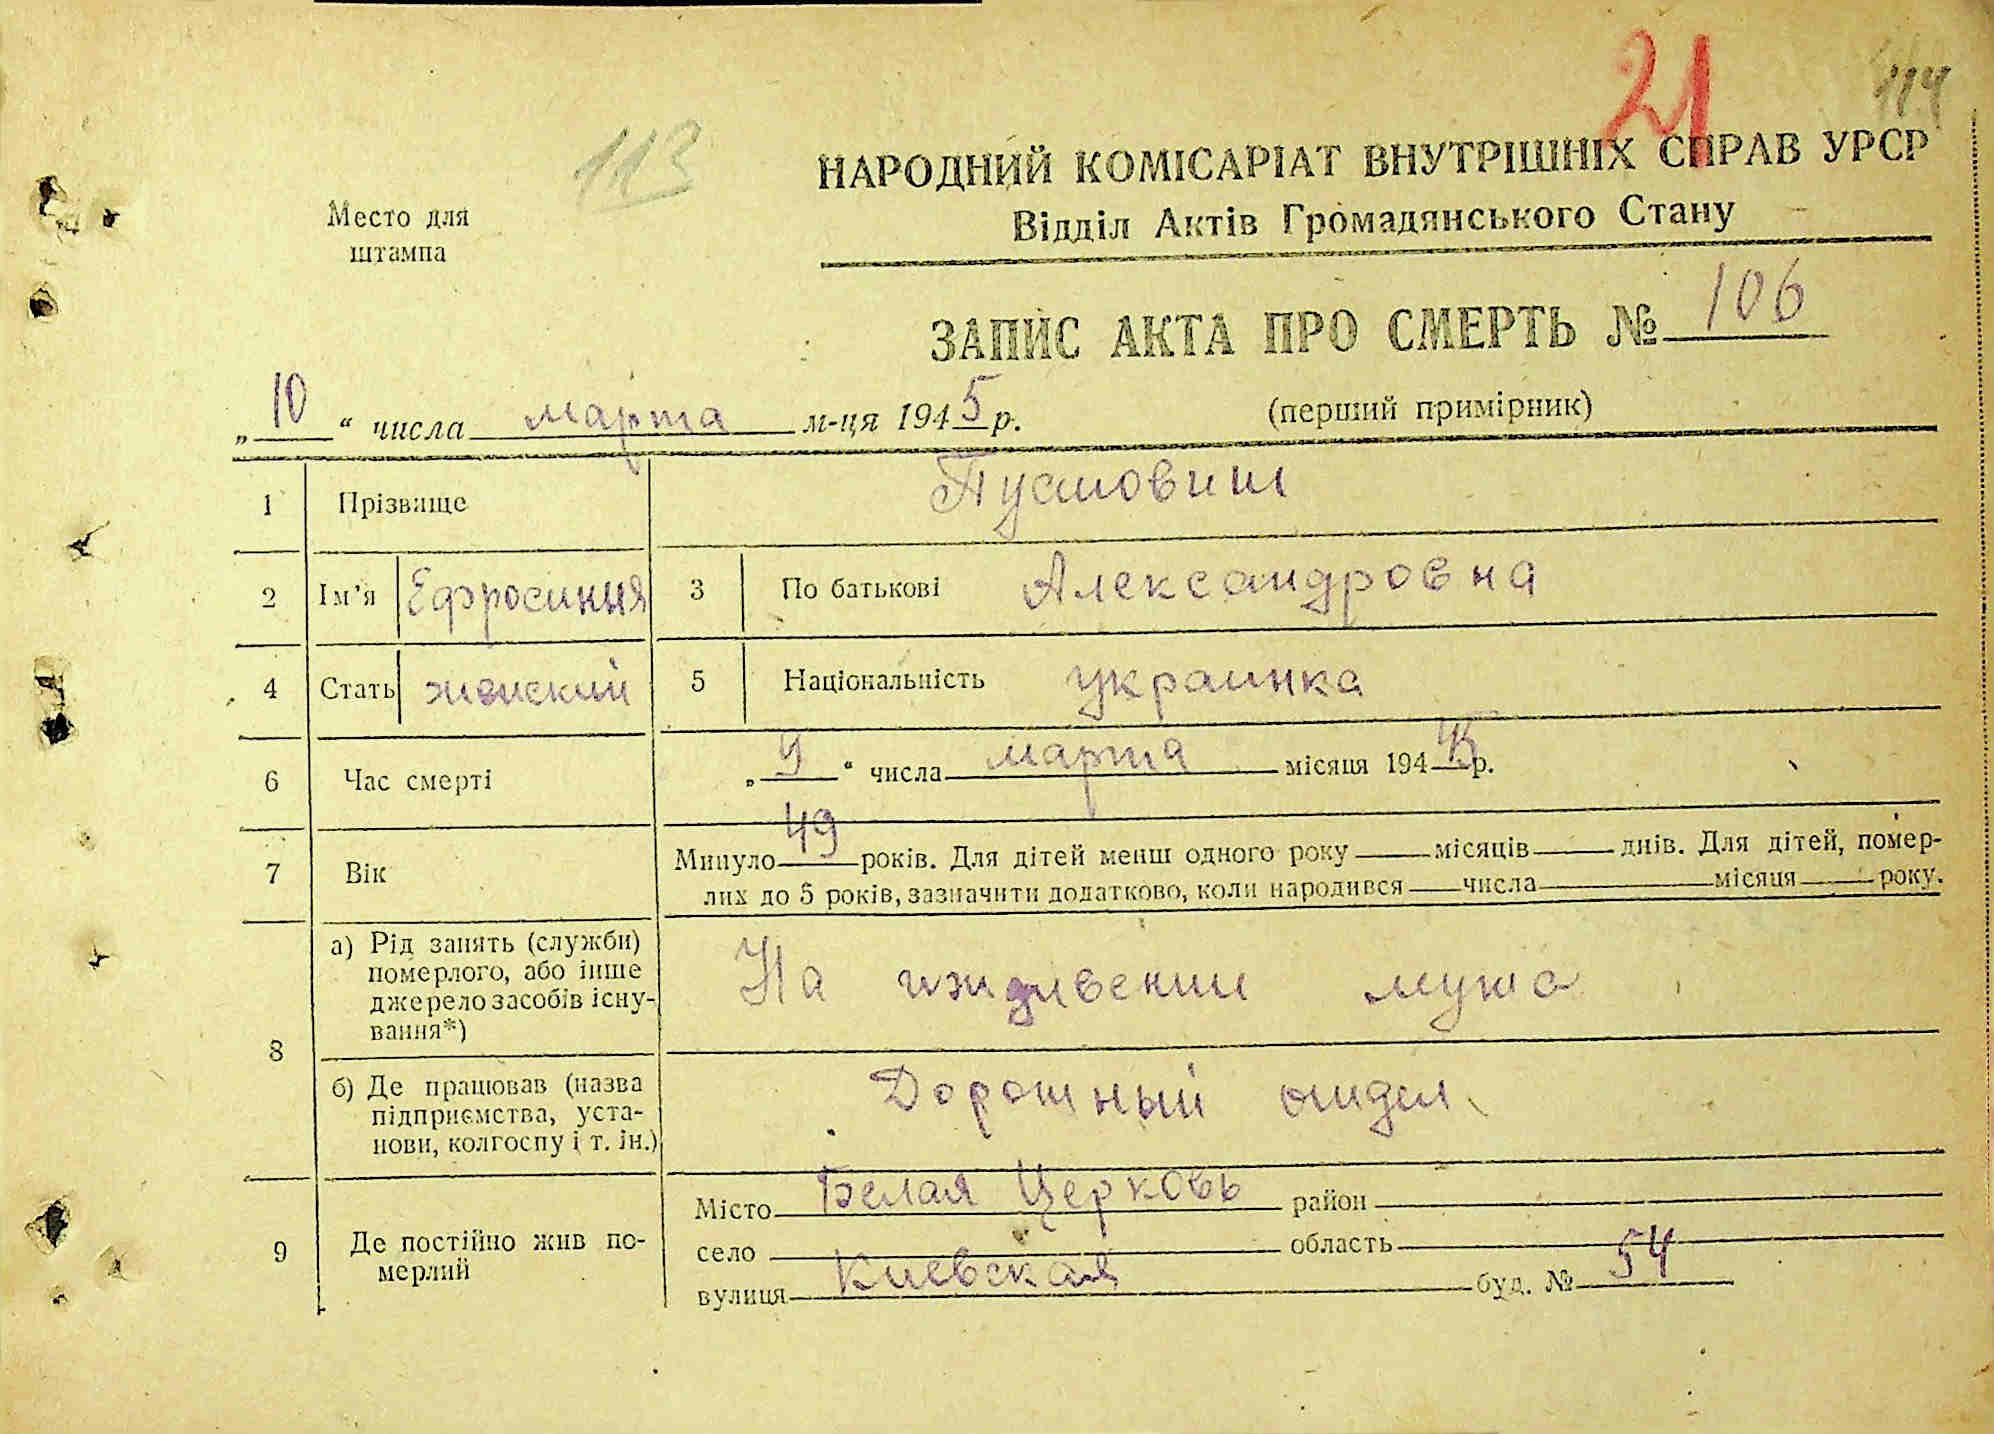 21
114
113
НАРОДНИЙ КОМІСАРІАТ ВНУТРІШНІХ СПРАВ УРСР
Відділ Актів Громадянського Стану
Место для
штампа
ЗАПИС АКТА ПРО СМЕРТЬ № 106
„10“ числа марта м-ця 1945 р.
(перший примірник)
1 Прізвище Пустовит
2 Ім’я Ефросиния 3 По батькові Александровна
4 Стать женский 5 Національність украинка
6 Час смерті „9“ числа марта місяця 19445 р.
7 Вік Минуло 49 років. Для дітей менш одного року місяців днів. Для дітей, помер-
лих до 5 років, зазначити додатково, коли народився числа місяця року.
8 а) Рід занять (служби)
померлого, або інше
джерело засобів існу-
вання*)
На иждивении мужа
б) Де працював (назва
підприємства, уста-
нови, колгоспу і т. ін.)
Дорожный отдел
9 Де постійно жив по-
мерлий
Місто Белая Церковь район
село область
вулиця Киевская буд. № 54